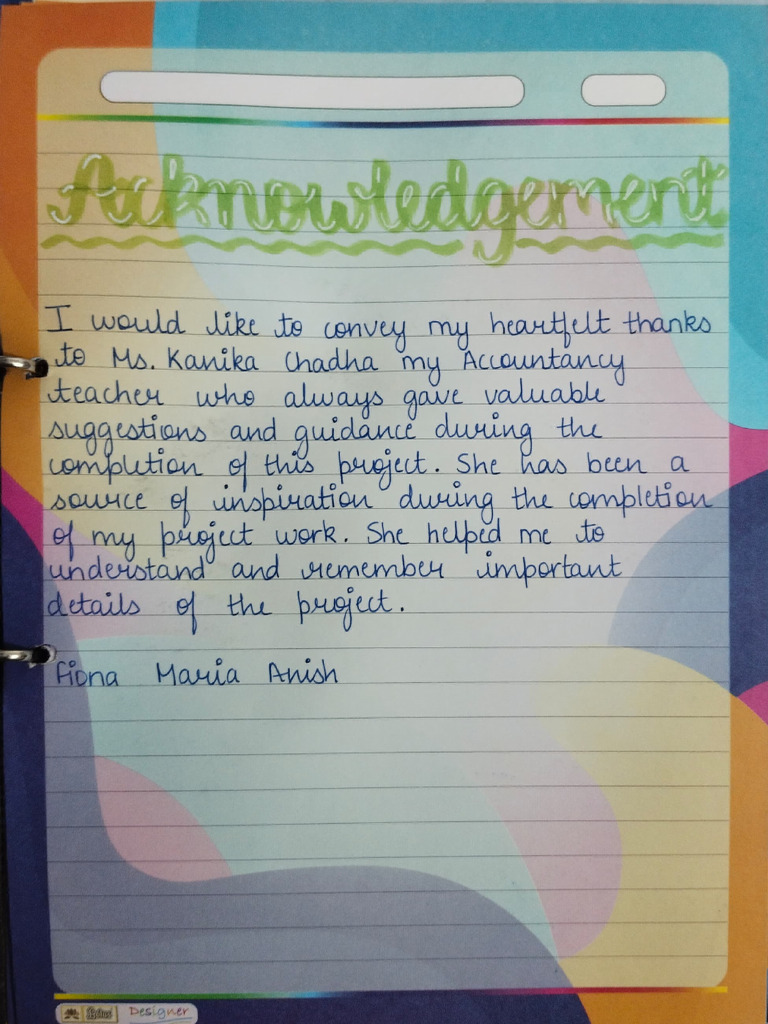 Acknowledgement
I would like to convey my heartfelt thanks
to Ms. Kanika Chadha my Accountancy
teacher who always gave valuable
suggestions and guidance during the
completion of this project. She has been a
source of inspiration during the completion
of my project work. She helped me to
understand and remember important
details of the project.
Fiona Maria Anish
Designer